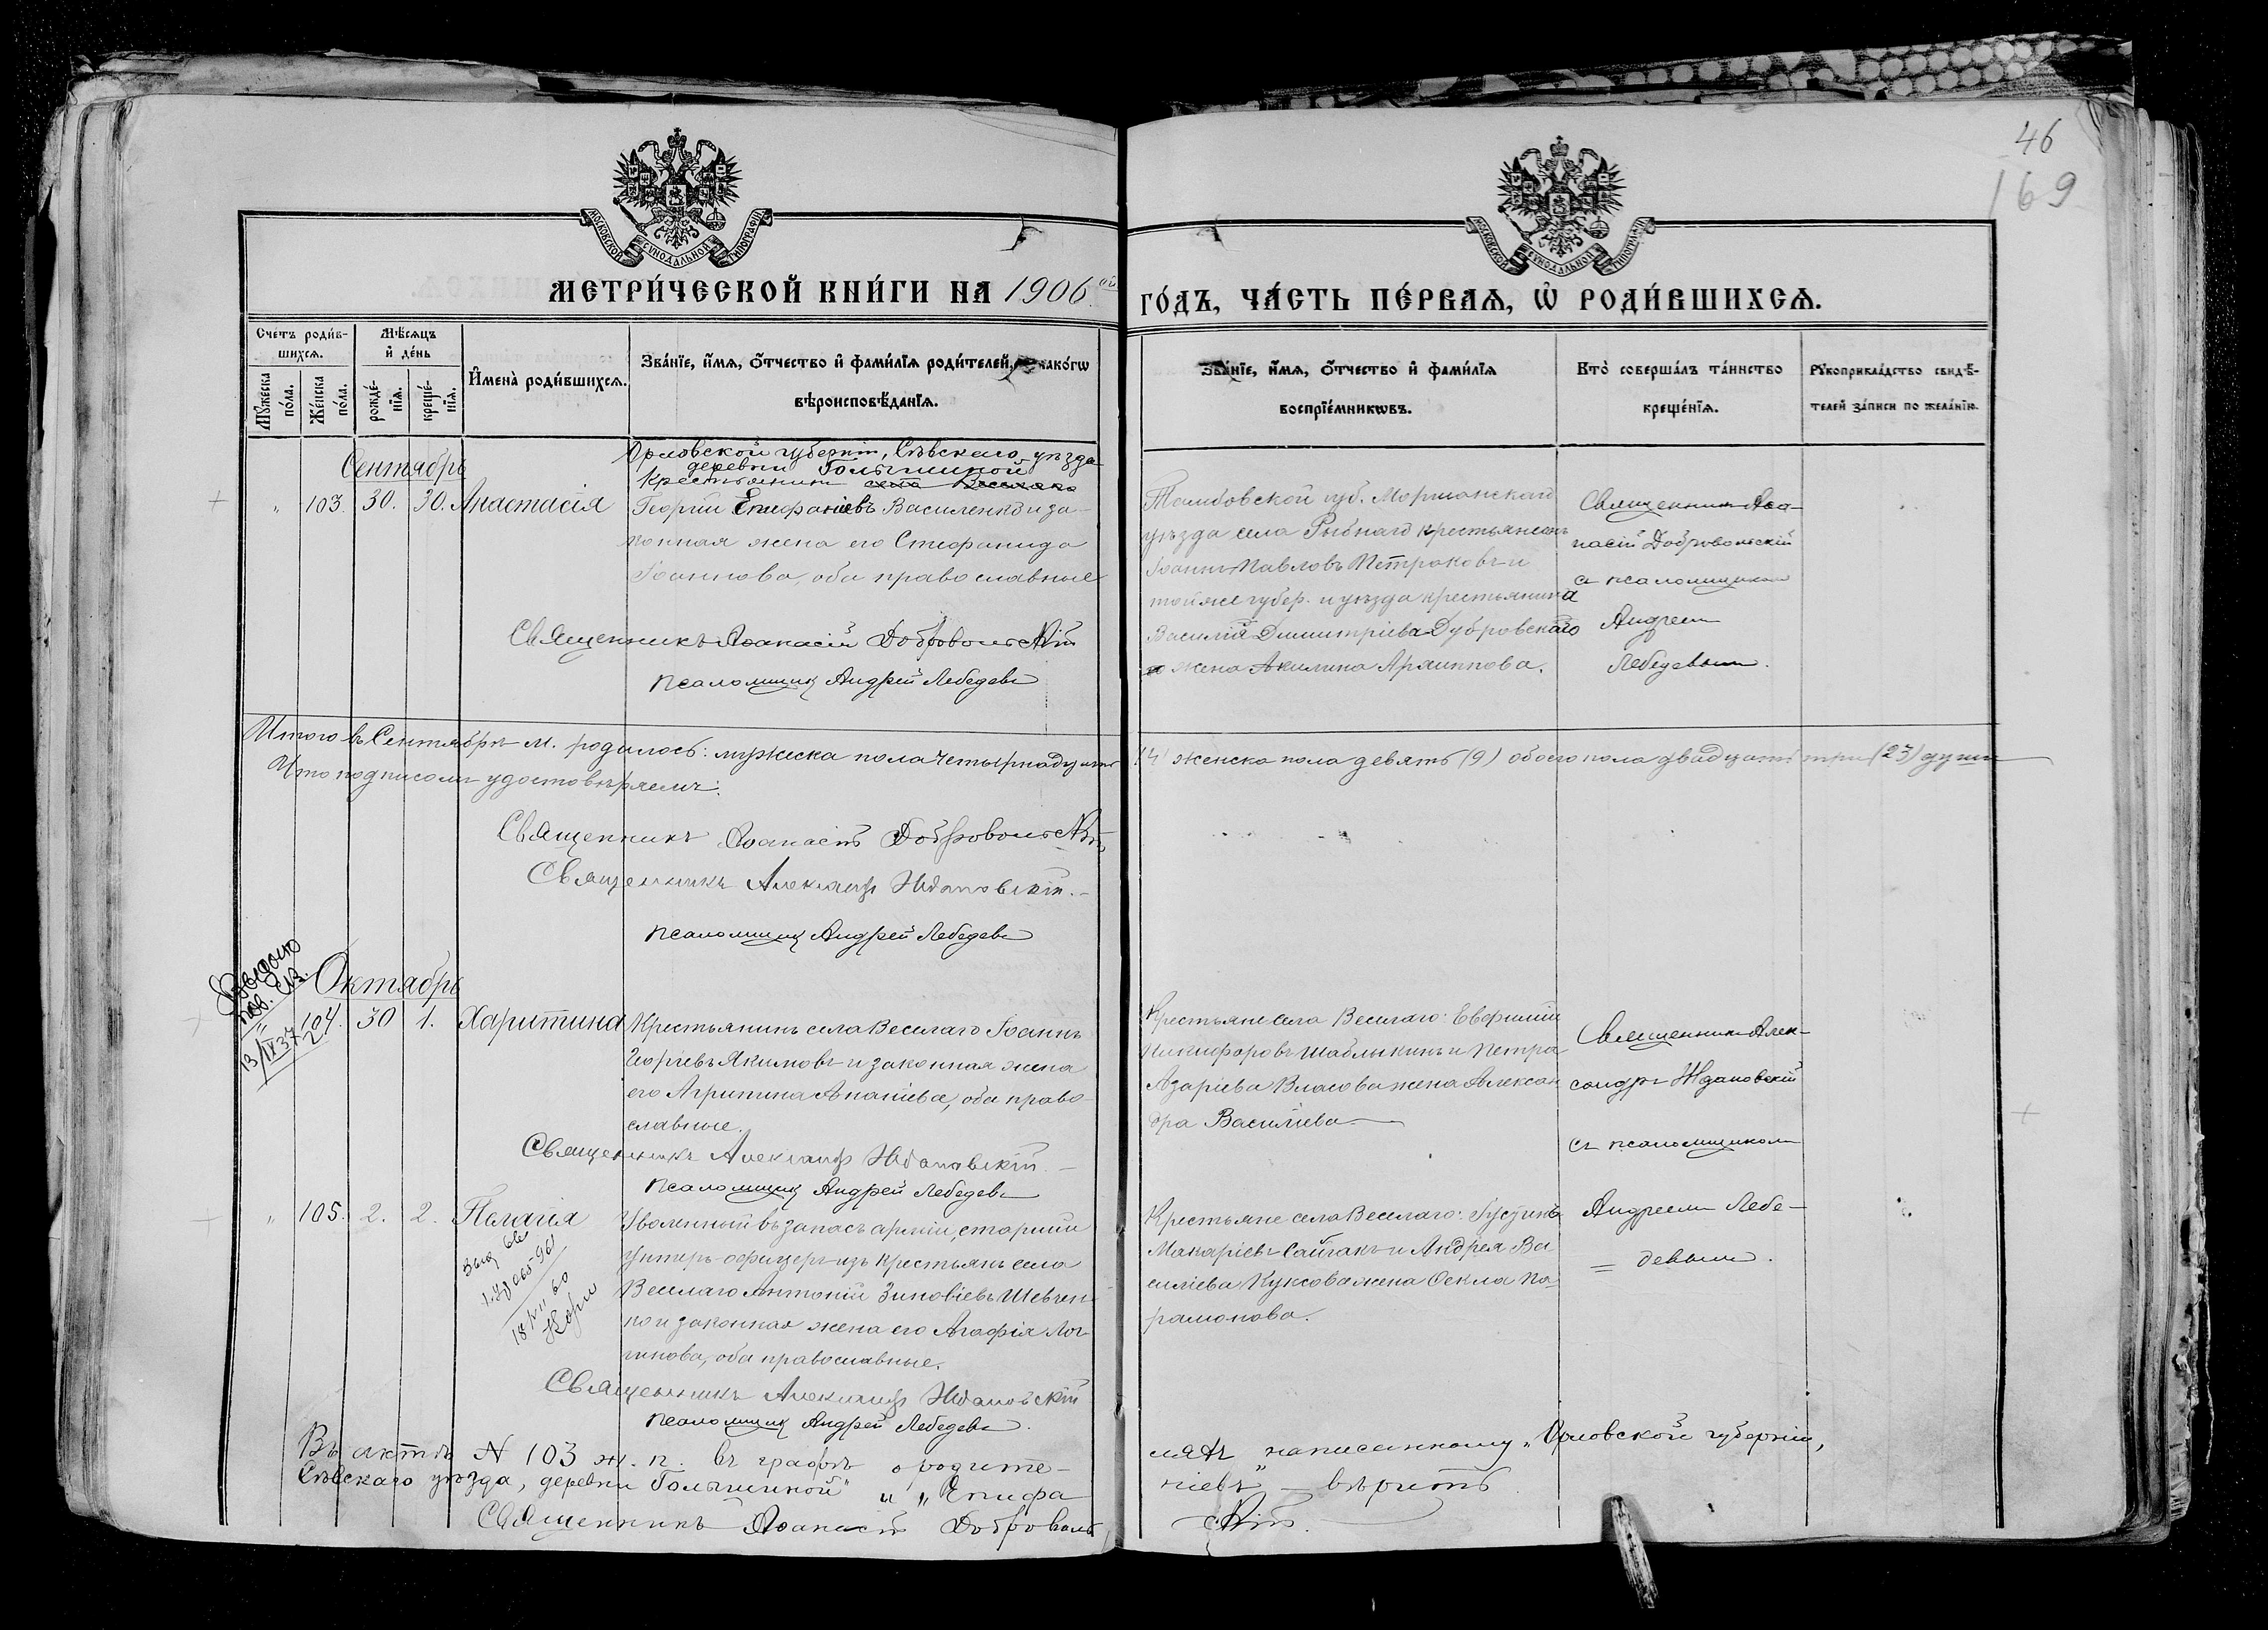 46
169
МОСКОВСКОЙ СѴНОДАЛЬНОЙ ТИПОГРАФІИ
МОСКОВСКОЙ СѴНОДАЛЬНОЙ ТИПОГРАФІИ
МЕТРИ́ЧЕСКОЙ КНИ́ГИ НА 1906 ой
ГО́ДЪ, ЧА́СТЬ ПЕ́РВАЯ, Ѡ҆ РОДИ́ВШИХСЯ.
Счетъ роди́в-
шихся.
Мѣсяцъ
и҆ де́нь
Мꙋжеска по́ла.
Же́нска по́ла.
рожде́-
нїя.
креще́-
нїя.
И҆мена̀ роди́вшихся.
Зва́нїе, и҆́мя, ѻ҆́тчество и҆ фами́лїя роди́телей, како́гѡ
вѣроисповѣ́данїя.
Зва́нїе, и҆́мя, ѻ҆́тчество и҆ фами́лїя
воспрїе́мникѡвъ.
Кто̀ соверша́лъ та́инство
креще́нїя.
Рꙋкоприкла́дство свидѣ́-
телей за́писи по жела́нїю.
Сентябрь
Орловской губерніи, Сѣвскаго уѣзда
деревни Голышиной
Крестьянинъ села Веселаго
" 103. 30. 30. Анастасія
Георгій Епифаніевъ Василенко и за-
конная жена его Стефанида
Іоаннова, оба православные
Священникъ Аѳанасій Добровольскій
Псаломщикъ Андрей Лебедевъ
Тамбовской губ. Моршанскаго
уѣзда села Рыбнаго крестьянинъ
Іоаннъ Павловъ Петраковъ и
той же губер. и уѣзда крестьянина
Василія Димитріева Дубровскаго
жена Акилина Архиппова.
Священникъ Аѳа-
насій Добровольскій
съ псаломщикомъ
Андреемъ
Лебедевымъ.
Итого въ Сентябрѣ м. родилось: мужеска пола четырнадцать
(14) женска пола девять (9) обоего пола двадцать три (23) души
Что подписомъ удостовѣряемъ:
Священникъ Аѳанасій Добровольскій
Священникъ Александръ Ждановскій.
Псаломщикъ Андрей Лебедевъ
Октябрь
13/IX 37
" 104. 30 1. Харитина
Крестьянинъ села Веселаго Іоаннъ
Георгіевъ Якимовъ и законная жена
его Агрипина Ананіева, оба право-
славные.
Священникъ Александръ Ждановскій.
Псаломщикъ Андрей Лебедевъ
Крестьяне села Веселаго: Евфимій
Никифоровъ Шаблыкинъ и Петра
Азаріева Власова жена Алексан
дра Васильева
Священникъ Алек-
сандръ Ждановскій
съ псаломщикомъ
Андреемъ Лебе-
девымъ.
" 105. 2. 2. Пелагія
Уволенный въ запасъ арміи, старшій
унтеръ-офицеръ изъ крестьянъ села
Веселаго Антоній Зиновіевъ Шевчен-
ко и законная жена его Агафія Лог-
гинова, оба православные.
Священникъ Александръ Ждановскій
Псаломщикъ Андрей Лебедевъ.
Крестьяне села Веселаго: Іустинъ
Макаріевъ Сайгакъ и Андрея Ва
силіева Куксова жена Ѳекла Па-
рамонова.
Въ актѣ N 103 ж. п. въ графѣ о родите-
ляхъ написанному „Орловской губерніи,
Сѣвскаго уѣзда, деревни Голышиной" и „Епифа
ніевъ" – вѣрить
Священникъ Аѳанасій Доброволь
скій.